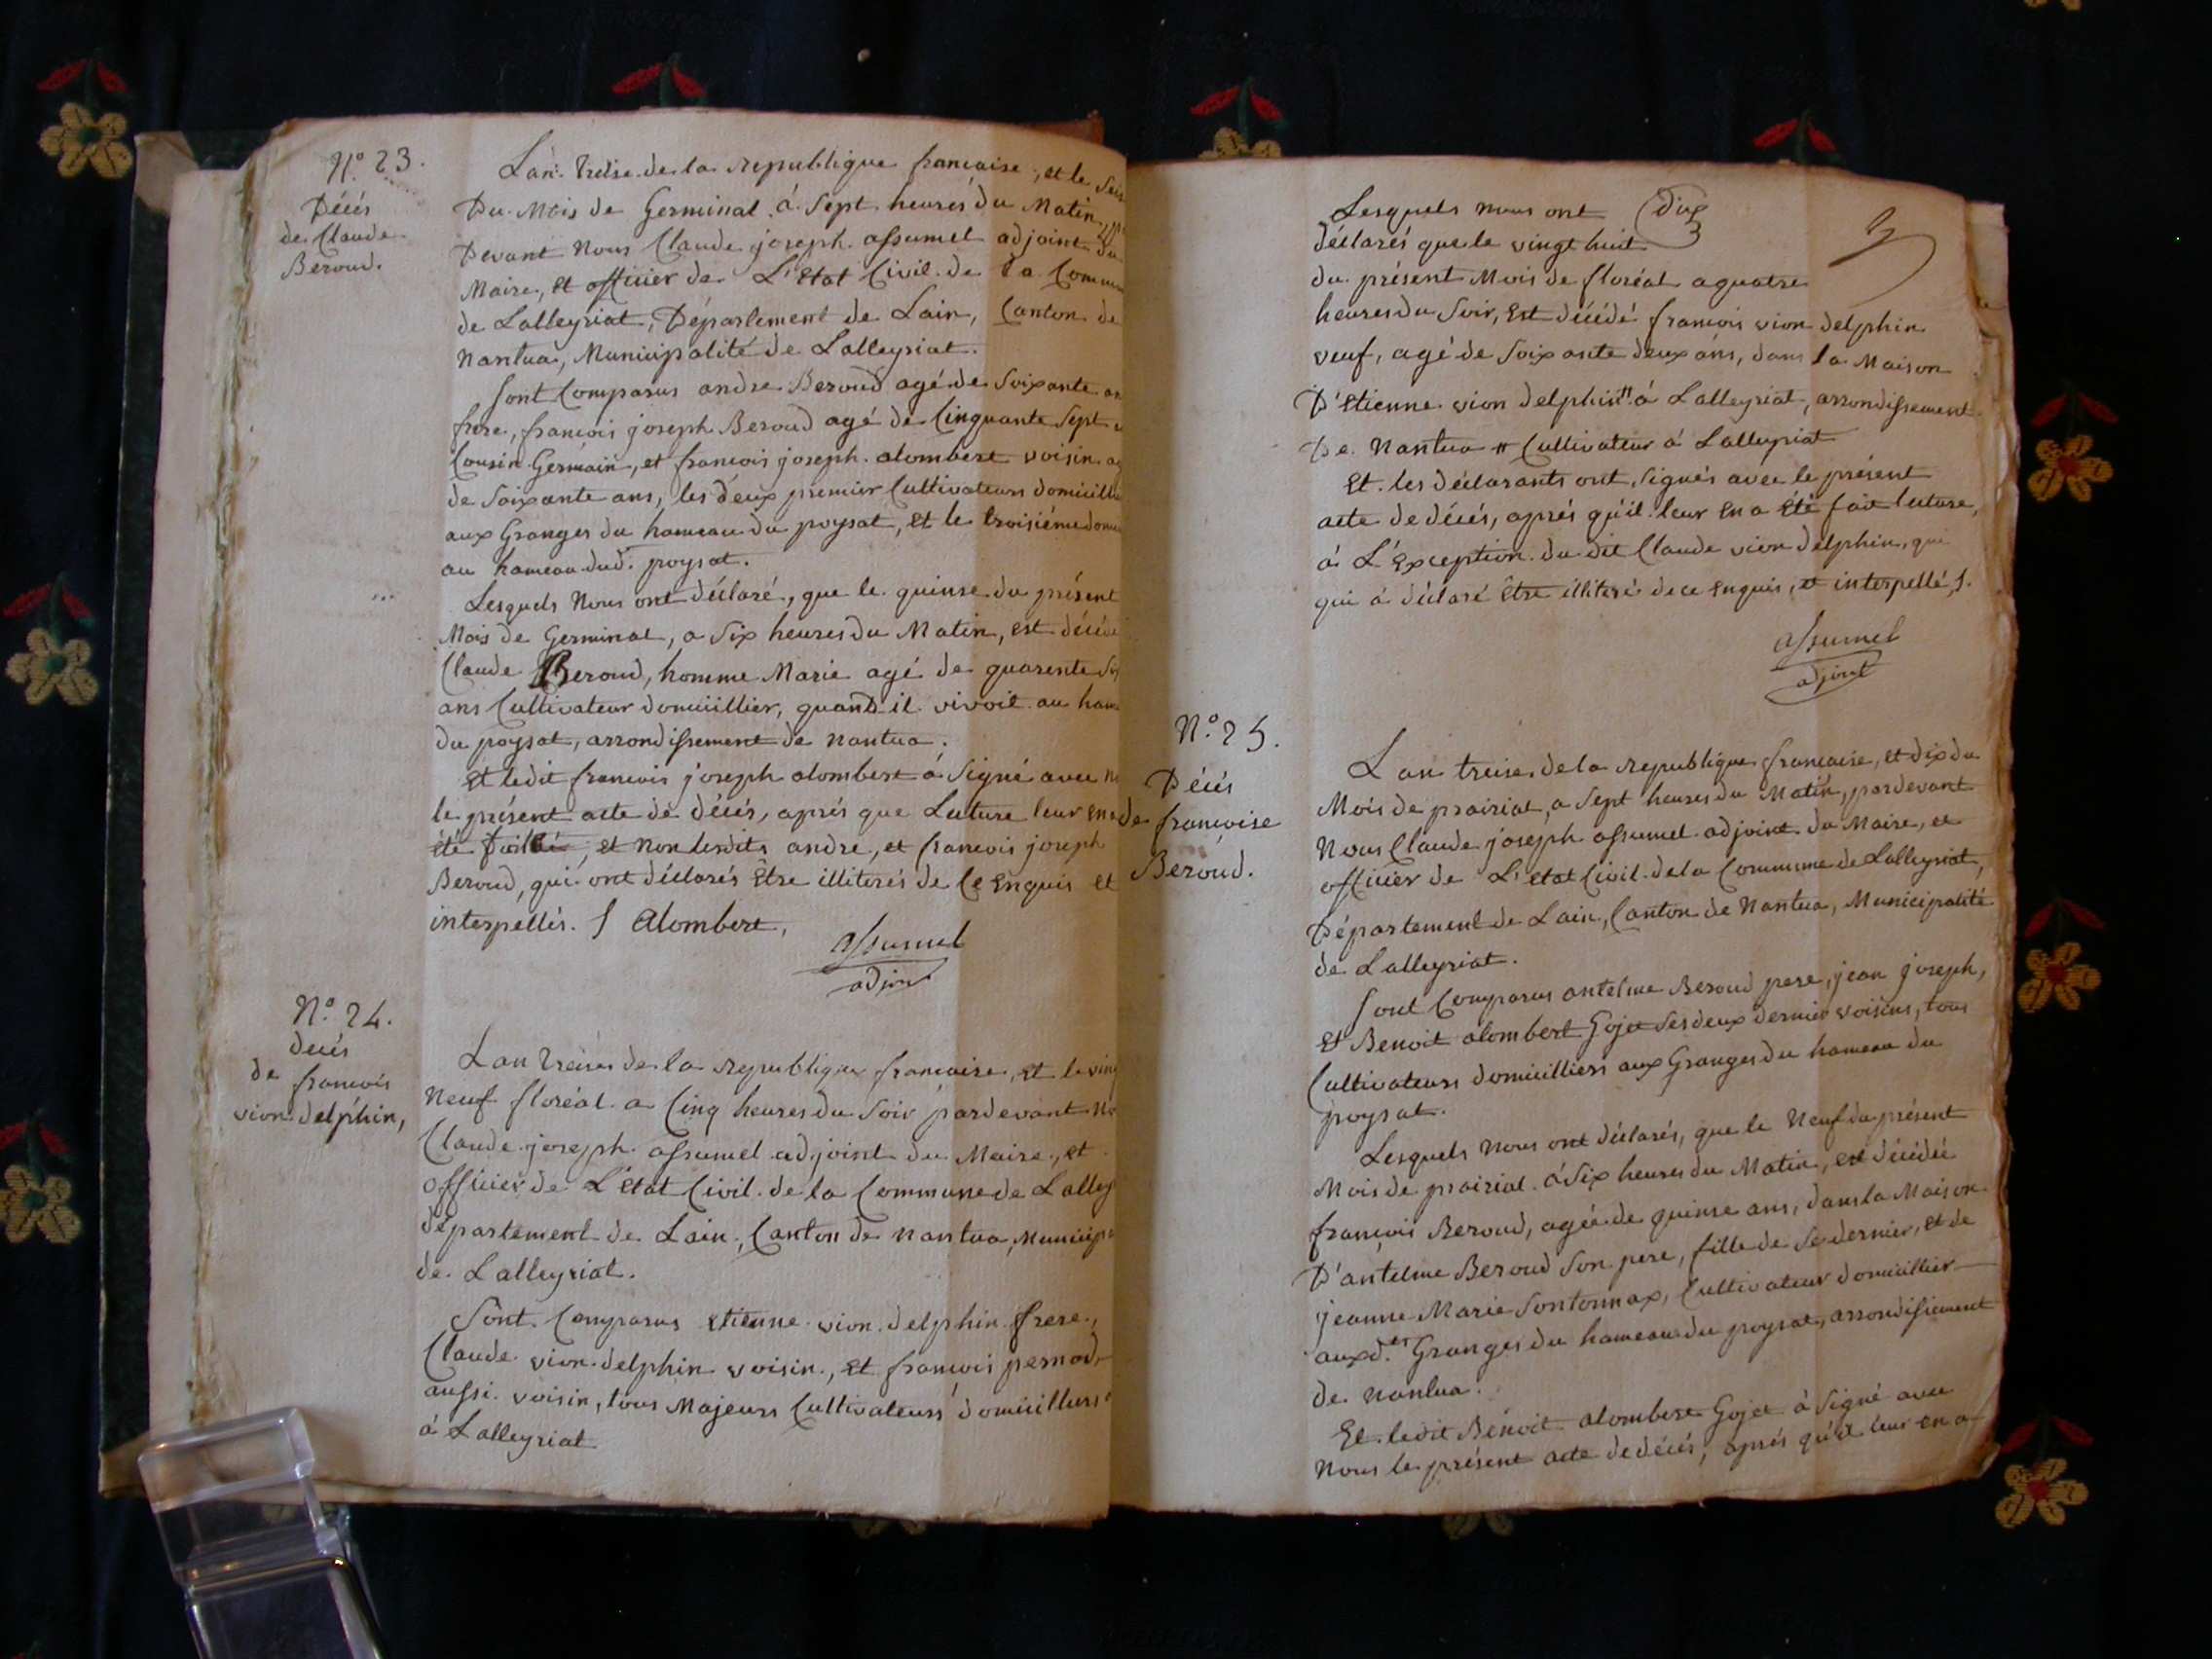 N.º 23.
Décés
de Claude
Beroud.
Lan treise de la republique francaise, et le
Du Mois de Germinal á Sept heures du Matin
Devant Nous Claude joseph assumel adjoint du
Maire, et officier de L'Etat Civil de la
de Lalleyriat, Département de Lain, Canton de
Nantua, Municipalité de Lalleyriat.
Sont Comparus andre Beroud agé de Soixante
frere, francois joseph Beroud agé de Cinquante Sept
Cousin Germain, et francois joseph alombert voisin
de Soixante ans, les deux premier Cultivateurs
aux Granges du hameau du poysat, et le troisiéme
au hameau dud. poysat.
Lesquels Nous ont déclaré, que le quinse du présent
Mois de Germinal, a Six heures du Matin, est
Claude Beroud, homme Marie agé de quarente
ans Cultivateur domicillier, quand il vivoit au
du poysat, arrondissement de nantua.
et ledit francois joseph alombert á Signé avec
le présent acte de décés, aprés que Lecture leur en a
été et Non lesdits andre, et francois joseph
Beroud, qui ont déclarés Être illiterés de Ce enquis et
interpellés. Alombert,
assumel
adjoint
N.º 24.
decés
de francois
vion delphin,
Lan treise de la republique francaise, et le
Neuf floréal a Cinq heures du Soir pardevant
Claude joseph assumel adjoint du Maire, et
officier de L'état Civil de la Commune de
département de Lain, Canton de nantua,
de Lalleyriat.
Sont Comparus etienne vion delphin frere,
Claude vion delphin voisin, et francois pernod
aussi voisin, tous Majeurs Cultivateurs domicilliers
á Lalleyriat
Lesquels nous ont dix
déclarés que le vingt huit
du présent Mois de floréal a quatre
heures du Soir, est décédé francois vion delphin
veuf, agé de Soixante deux ans, dans la Maison
D'etienne vion delphin á Lalleyriat, arrondissement
De Nantua Cultivateur á Lalleyriat
et les déclarants ont Signés avec le présent
acte de décés, aprés qu'il leur en a été fait lecture,
á L'exception du dit Claude vion delphin, que
qui á déclaré Être illiteré de ce enquis, et interpellé.
assumel
adjoint
N.º 25.
Décés
de francoise
Beroud.
Lan treise de la republique francaise, et dix du
Mois de prairial, a Sept heures du Matin, pardevant
Nous Claude joseph assumel adjoint du Maire, et
officier de L'etat Civil de la Commune de Lalleyriat,
Département de Lain, Canton de Nantua, Municipalité
de Lalleyriat.
Sont Comparus antelme Beroud pere, jean joseph,
et Benoit alombert Gojet Ses deux dernier voisins, tous
Cultivateurs domicilliers aux Granges du hameau du
poysat.
Lesquels Nous ont déclarés, que le Neuf du présent
Mois de prairial á Six heures du Matin, est décédée
françois Beroud, agée de quinse ans, dans la Maison
D'antelme Beroud Son pere, fille de Se dernier, et de
jeanne Marie Sontonnax, Cultivateur domicillier
aux d.es Granges du hameau du poysat, arrondissement
de Nantua.
Et ledit Benoit alombert Gojet á Signé avec
Nous le présent acte de décés, aprés qu'il leur en a